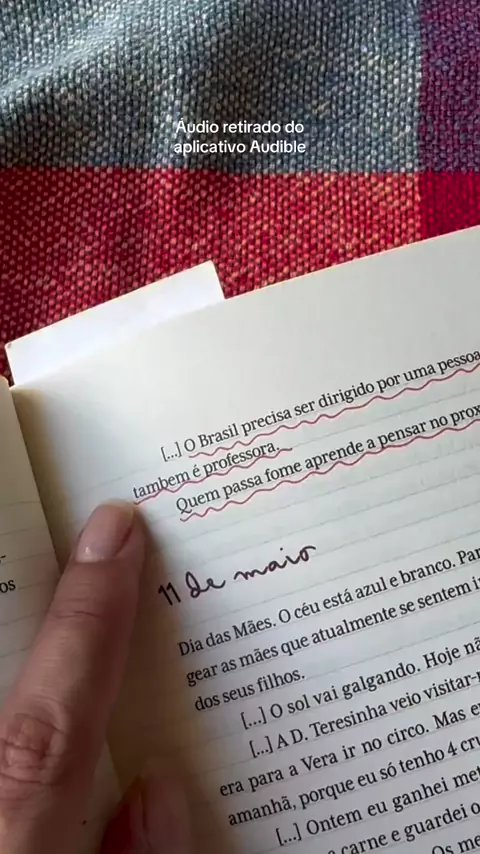 Áudio retirado do
aplicativo Audible
[...] O Brasil precisa ser dirigido por uma pessoa
tambem é professora.
Quem passa fome aprende a pensar no
11 de maio
Dia das Mães. O céu está azul e branco.
gear as mães que atualmente se sentem
dos seus filhos.
[...] O sol vai galgando. Hoje
[...] A D. Teresinha veio
era para a Vera ir no circo. Mas
amanhã, porque eu só tenho 4
[...] Ontem eu ganhei
carne e guardei o
os